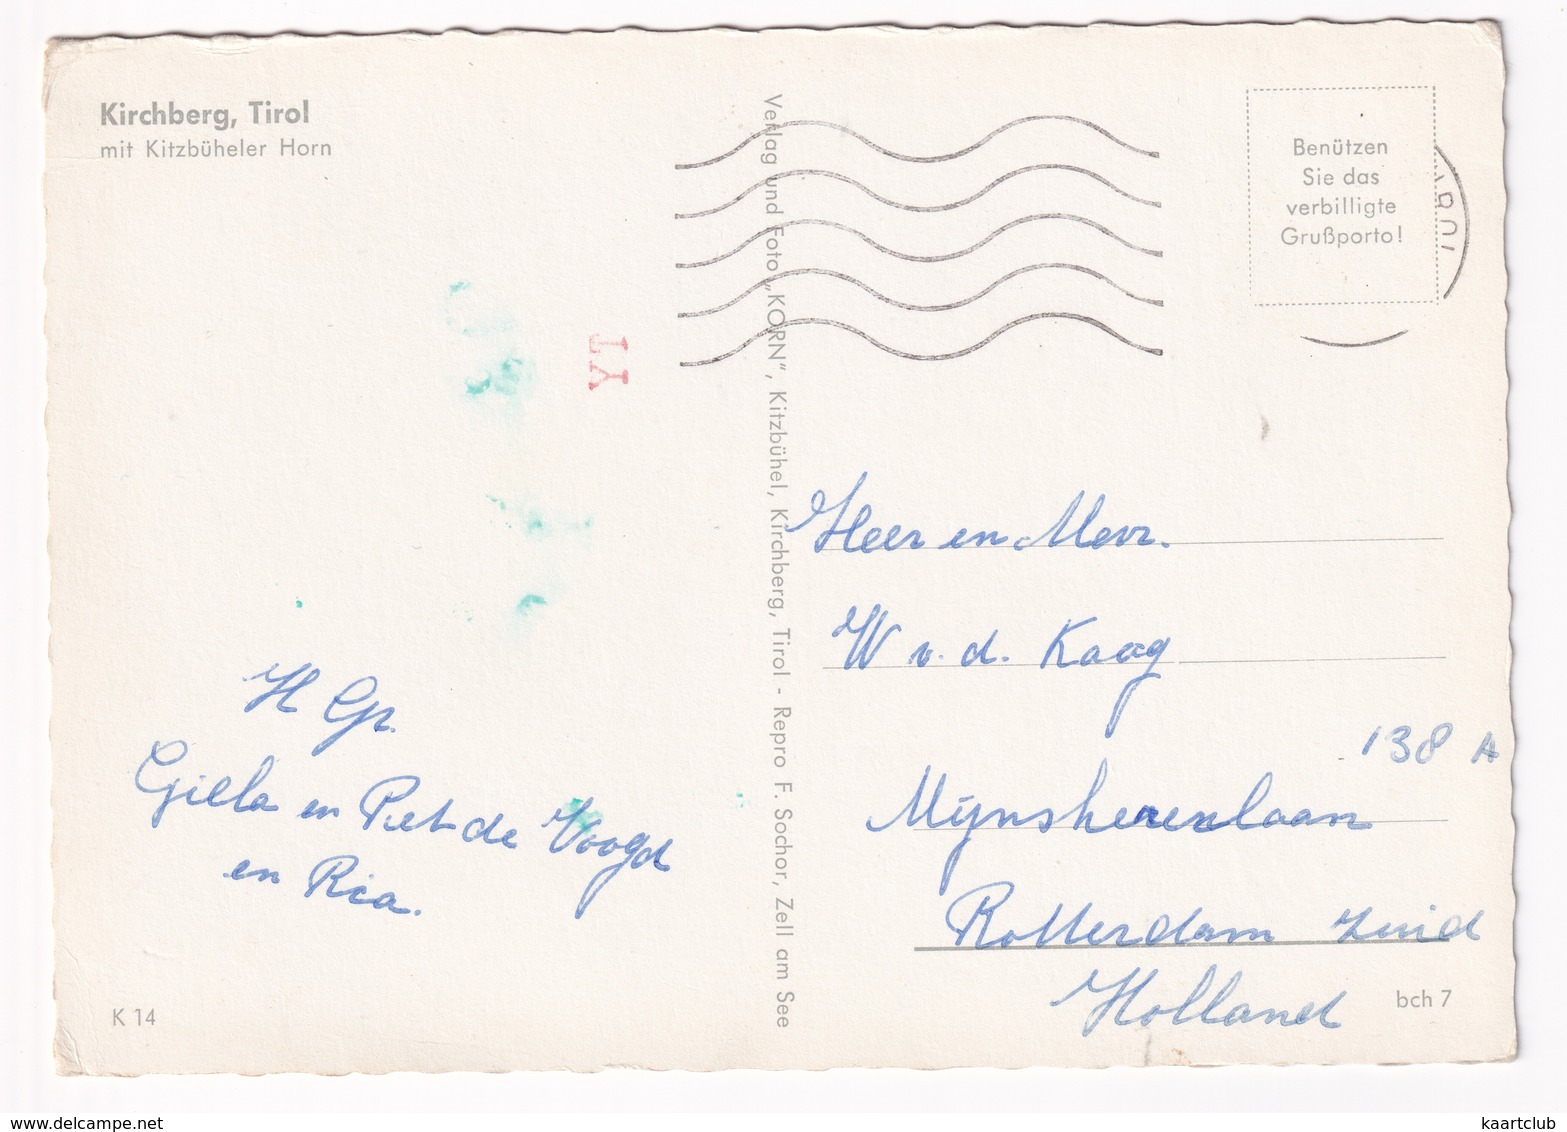 Kirchberg, Tirol
mit Kitzbüheler Horn
Benützen
Sie das
verbilligte
Grußporto!
YT
Verlag und Foto „KORN“, Kitzbühel, Kirchberg, Tirol - Repro F. Sochor, Zell am See
H Gr.
Giella en Piet de Voogd
en Ria.
Heer en Mevr.
W v. d. Kaag
138 A
Mijnsherenlaan
Rotterdam zuid
Holland
K 14
bch 7
www.delcampe.net
kaartclub